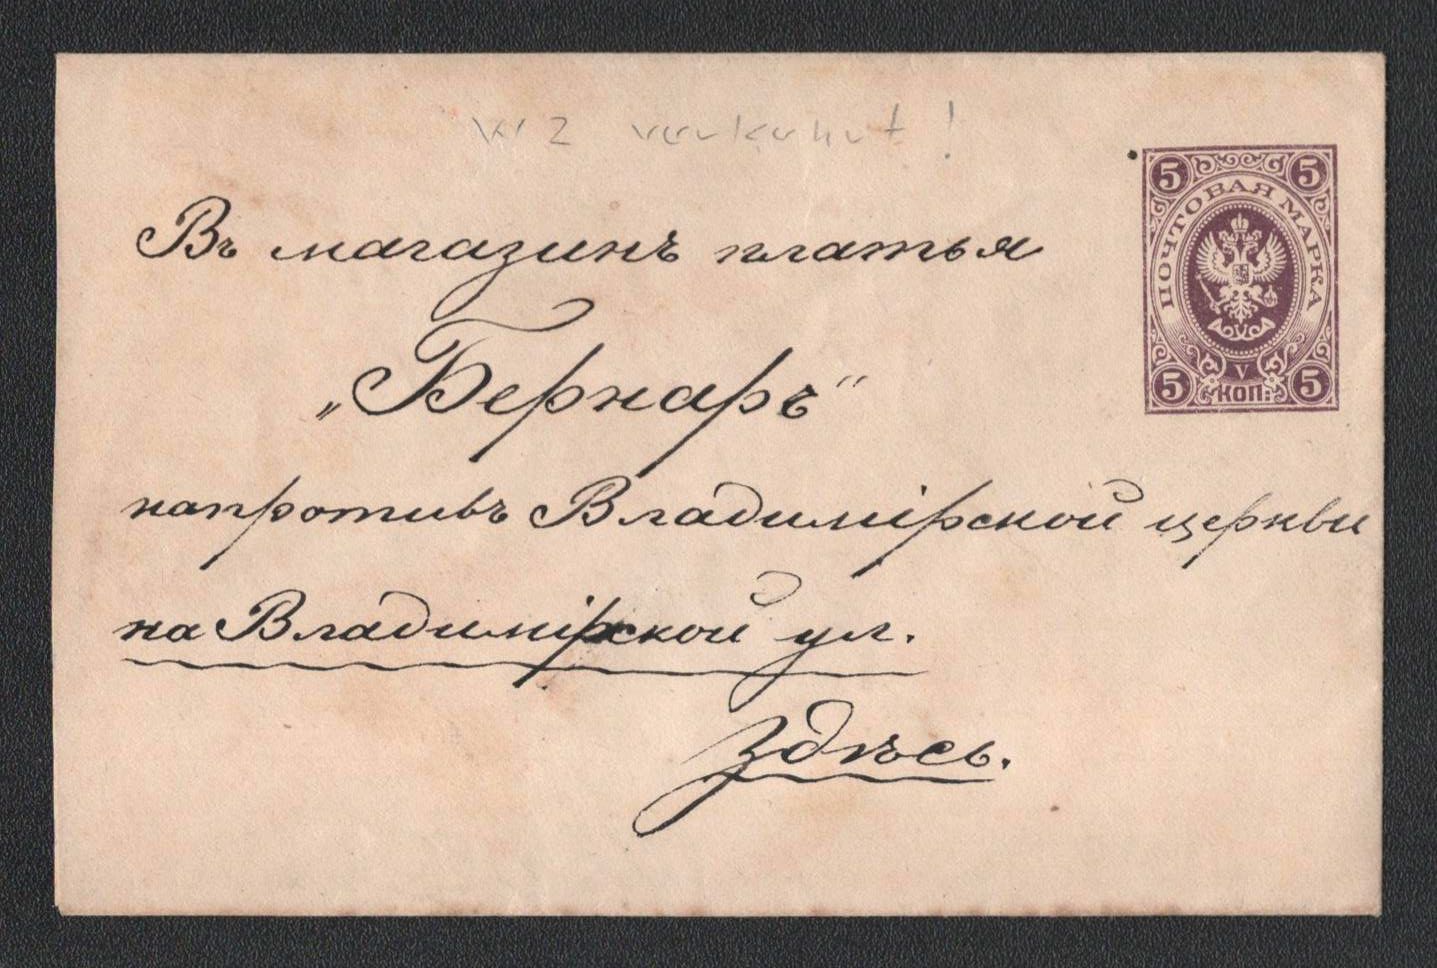 WZ verkehrt!
Въ магазинъ платья
„Бернаръ“
напротивъ Владимірской церкви
на Владимірской ул.
Здѣсь.
5 5
ПОЧТОВАЯ МАРКА
V
5 КОП: 5